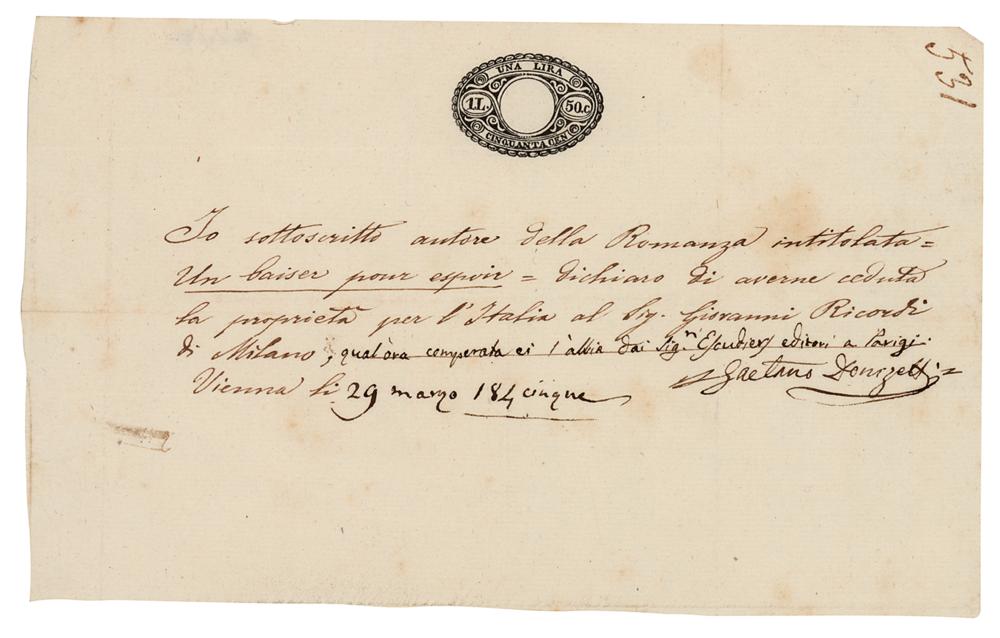 531
UNA LIRA
1L. 50.c
CINQUANTA CEN
Io sottoscritto autore della Romanza intitolata=
Un baiser pour espoir = dichiaro di averne ceduta
la proprietà per l'Italia al Sig. Giovanni Ricordi
di Milano, qual'ora comperata ei l'abbia dai Sign Escudiers editori a Parigi.
Gaetano Donizetti =
Vienna li 29 marzo 184 cinque